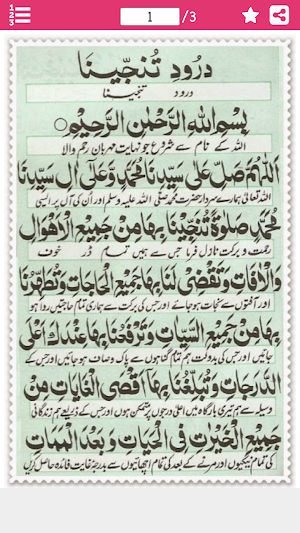 1 /3
درودِ تُنجِّینا
درود تنجینا
بِسْمِ اللهِ الرَّحْمٰنِ الرَّحِیْمِ
اللہ کے نام سے شروع جو نہایت مہربان رحم والا
اَللّٰهُمَّ صَلِّ عَلٰی سَیِّدِنَا مُحَمَّدٍ وَّعَلٰی اٰلِ سَیِّدِنَا
اللہ تعالیٰ ہمارے سردار حضرت محمد صلی اللہ علیہ وسلم اور ان کی آل پر ایسی
مُحَمَّدٍ صَلٰوةً تُنَجِّیْنَا بِهَا مِنْ جَمِیْعِ الْاَهْوَالِ
رحمت و برکت نازل فرما جس سے ہمیں تمام ڈر خوف
وَالْاٰفَاتِ وَتَقْضِیْ لَنَا بِهَا جَمِیْعَ الْحَاجَاتِ وَتُطَهِّرُنَا
اور آفتوں سے نجات ہو جائے اور جس کی برکت سے ہماری تمام حاجتیں روا ہو
بِهَا مِنْ جَمِیْعِ السَّیِّاٰتِ وَتَرْفَعُنَا بِهَا عِنْدَكَ اَعْلَی
جائیں اور جس کی بدولت ہم تمام گناہوں سے پاک و صاف ہو جائیں اور جس کے
الدَّرَجَاتِ وَتُبَلِّغُنَا بِهَا اَقْصَی الْغَایَاتِ مِنْ
وسیلہ سے ہم تیری بارگاہ میں اعلیٰ درجوں پر متمکن ہوں اور جس کے ذریعے ہم زندگانی
جَمِیْعِ الْخَیْرَاتِ فِی الْحَیَاتِ وَبَعْدَ الْمَمَاتِ
کی تمام نیکیوں اور مرنے کے بعد کی تمام اچھائیوں سے بدرجہ غایت فائدہ حاصل کریں